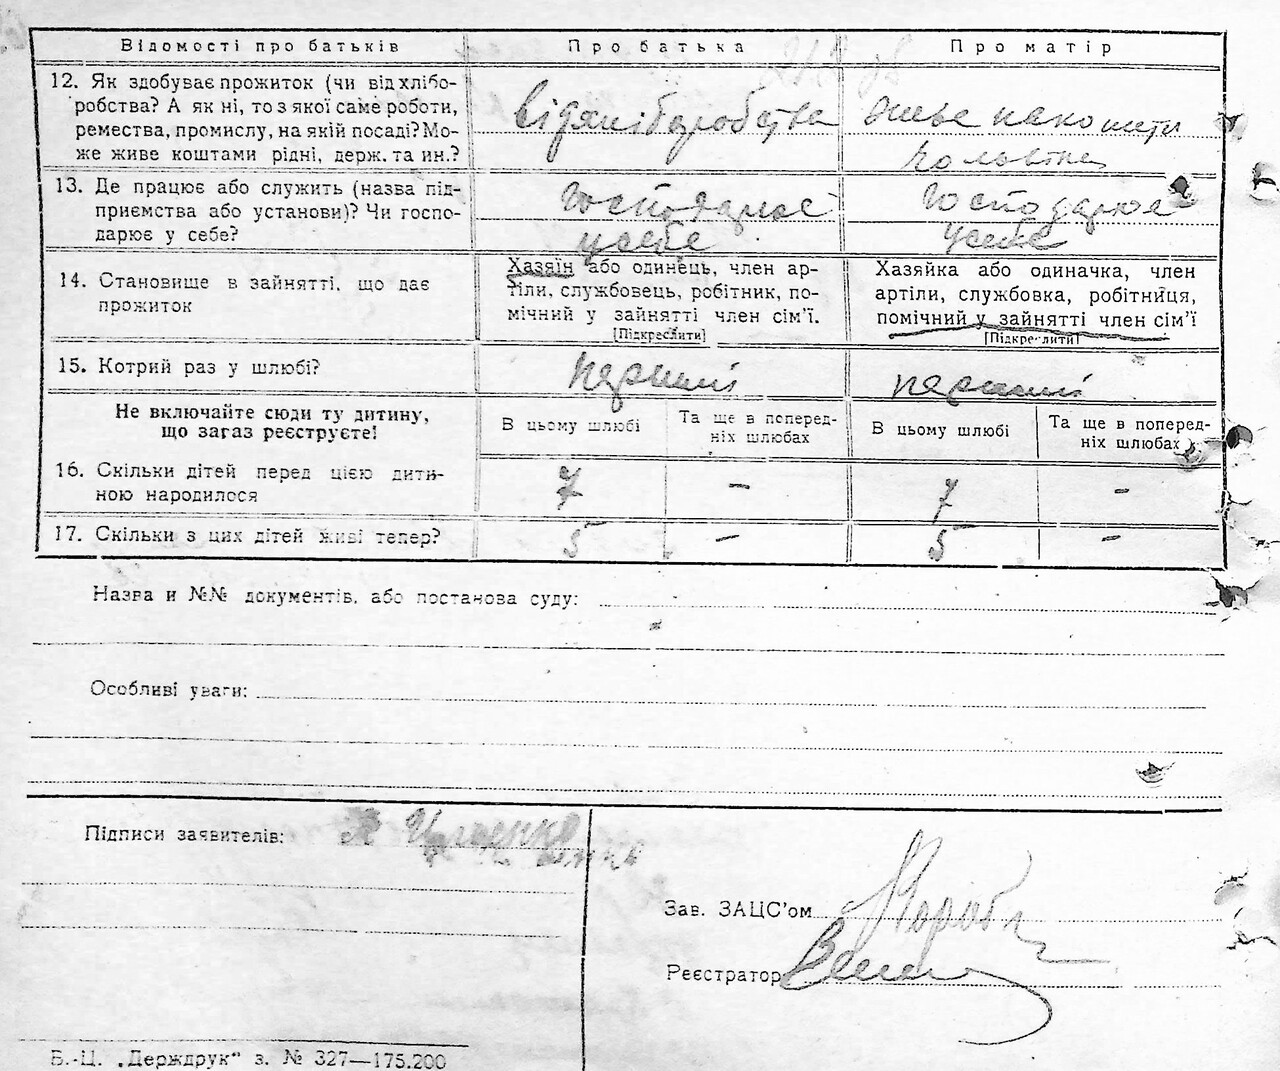 Відомості про батьків
Про батька
Про матір
12. Як здобуває прожиток (чи від хлібо-
робства? А як ні, то з якої саме роботи,
ремества, промислу, на якій посаді? Мо-
же живе коштами рідні, держ. та ин.?
від хліборобства
живе на кошти
чоловіка
13. Де працює або служить (назва під-
приємства або установи)? Чи госпо-
дарює у себе?
Господарює
у себе
Господарює
у себе
14. Становище в зайнятті, що дає
прожиток
Хазяїн або одинець, член ар-
тіли, службовець, робітник, по-
мічний у зайнятті член сім'ї.
[Підкреслити]
Хазяйка або одиначка, член
артіли, службовка, робітниця,
помічний у зайнятті член сім'ї
[Підкреслити]
15. Котрий раз у шлюбі?
перший
перший
Не включайте сюди ту дитину,
що загаз реєструєте!
В цьому шлюбі
Та ще в поперед-
ніх шлюбах
В цьому шлюбі
Та ще в поперед-
ніх шлюбах
16. Скільки дітей перед цією дити-
ною народилося
7
-
7
-
17. Скільки з цих дітей живі тепер?
5
-
5
-
Назва и №№ документів, або постанова суду:
Особливі уваги:
Підписи заявителів:
Зав. ЗАЦС'ом
Реєстратор
Б.-Ц. „Держдрук“ з. № 327—175.200